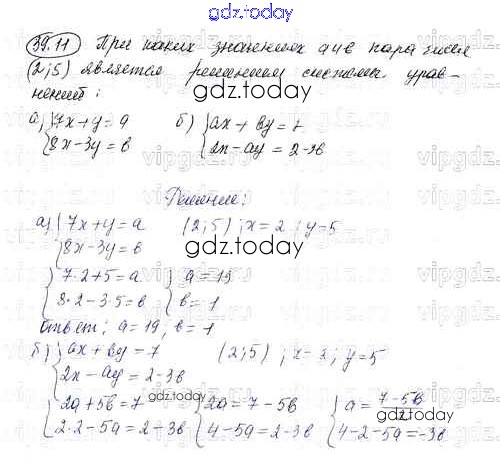 gdz.today
39.11 При каких значениях a и b пара чисел
(2;5) является решением системы урав-
нений:
а) {7x+y=a
{8x-3y=b
б) {ax+by=7
{2x-ay=2-3b
gdz.today
Решение:
а) {7x+y=a
{8x-3y=b
(2;5); x=2; y=5
gdz.today
{7·2+5=a
{8·2-3·5=b
{a=19
{b=1
ответ: a=19, b=1
б) {ax+by=7
{2x-ay=2-3b
(2;5); x=2; y=5
gdz.today
{2a+5b=7
{2·2-5a=2-3b
{2a=7-5b
{4-5a=2-3b
{a=7-5b
{4-2-5a=-3b
gdz.today